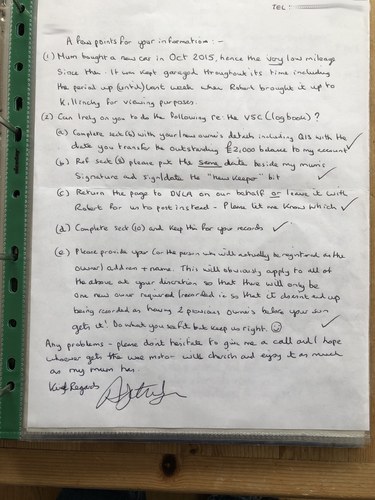 TEL :
A few points for your information : -
(1) Mum bought a new car in Oct 2015, hence the very low mileage
since then. It was kept garaged throughout its time including
the period up (until) last week when Robert brought it up to
Killinchy for viewing purposes.
(2) Can I rely on you to do the following re: the V5C (logbook) ?
(a) Complete sect (6) with your/new owner's details including Q15 with the
date you transfer the outstanding £2,000 balance to my account
(b) Ref sect (8) please put the same date beside my mums
Signature and sign/date the "new keeper" bit
(c) Return the page to DVLA on our behalf or leave it with
Robert for us to post instead - Please let me know which
(d) Complete sect (10) and keep this for your records
(e) Please provide your (or the person who will actually be registered as the
owner) address + name. This will obviously apply to all of
the above at your discretion so that there will only be
one new owner required/recorded in so that it doesnt end up
being recorded as having 2 previous owners before your son
gets it! Do what you see fit but keep us right.
Any problems - please dont hesitate to give me a call and I hope
whoever gets the wee motor - well cherish and enjoy it as much
as my mum has.
Kind Regards